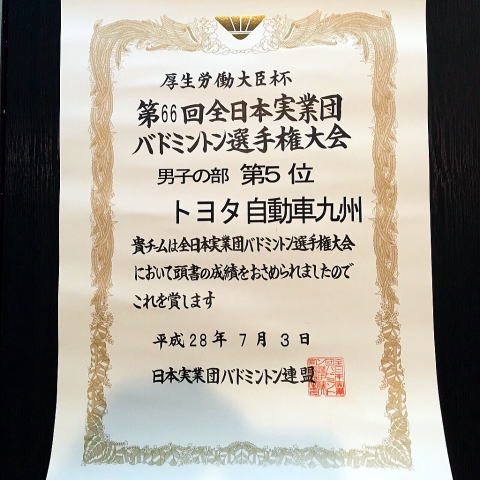 厚生労働大臣杯
第66回全日本実業団
バドミントン選手権大会
男子の部 第5位
トヨタ自動車九州
貴チームは全日本実業団バドミントン選手権大会
において頭書の成績をおさめられましたので
これを賞します
平成28年7月3日
日本実業団バドミントン連盟